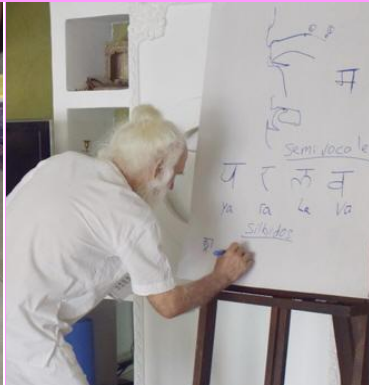 म
semivocale
य र ल व
ya ra la va
silbidos